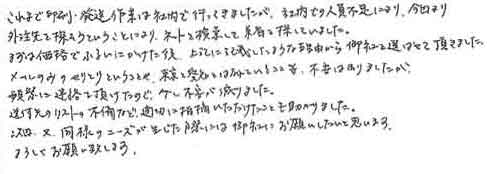 これまで印刷・発送作業は社内で行ってきましたが、社内での人員不足により、今回より
外注先を探そうということになり、ネットを検索して業者を探していました。
まずは価格でふるいにかけた後、上記にも記したような理由から御社を選ばせて頂きました。
メールのみのやりとりということや、東京と愛知とは離れていること等、不安はありましたが、
頻繁に連絡を頂けたので、少し不安が減りました。
送付先のリストの不備など、適切に指摘いただけたことも助かりました。
次回、又、同様のニーズが生じた際には御社にお願いしたいと思います。
よろしくお願い致します。